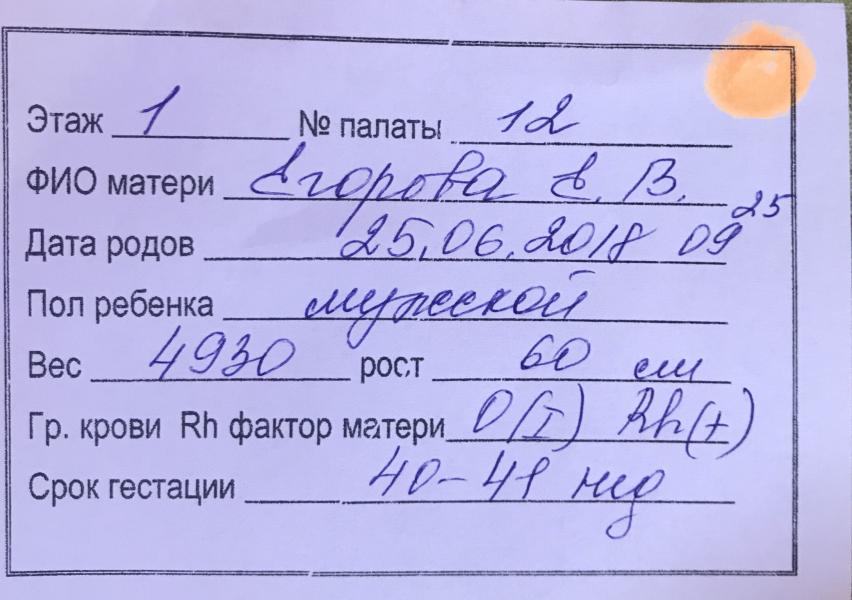 Этаж 1 № палаты 12
ФИО матери Егорова Е. В.
Дата родов 25.06.2018 09 25
Пол ребенка мужской
Вес 4930 рост 60 см
Гр. крови Rh фактор матери 0(I) Rh(+)
Срок гестации 40-41 нед